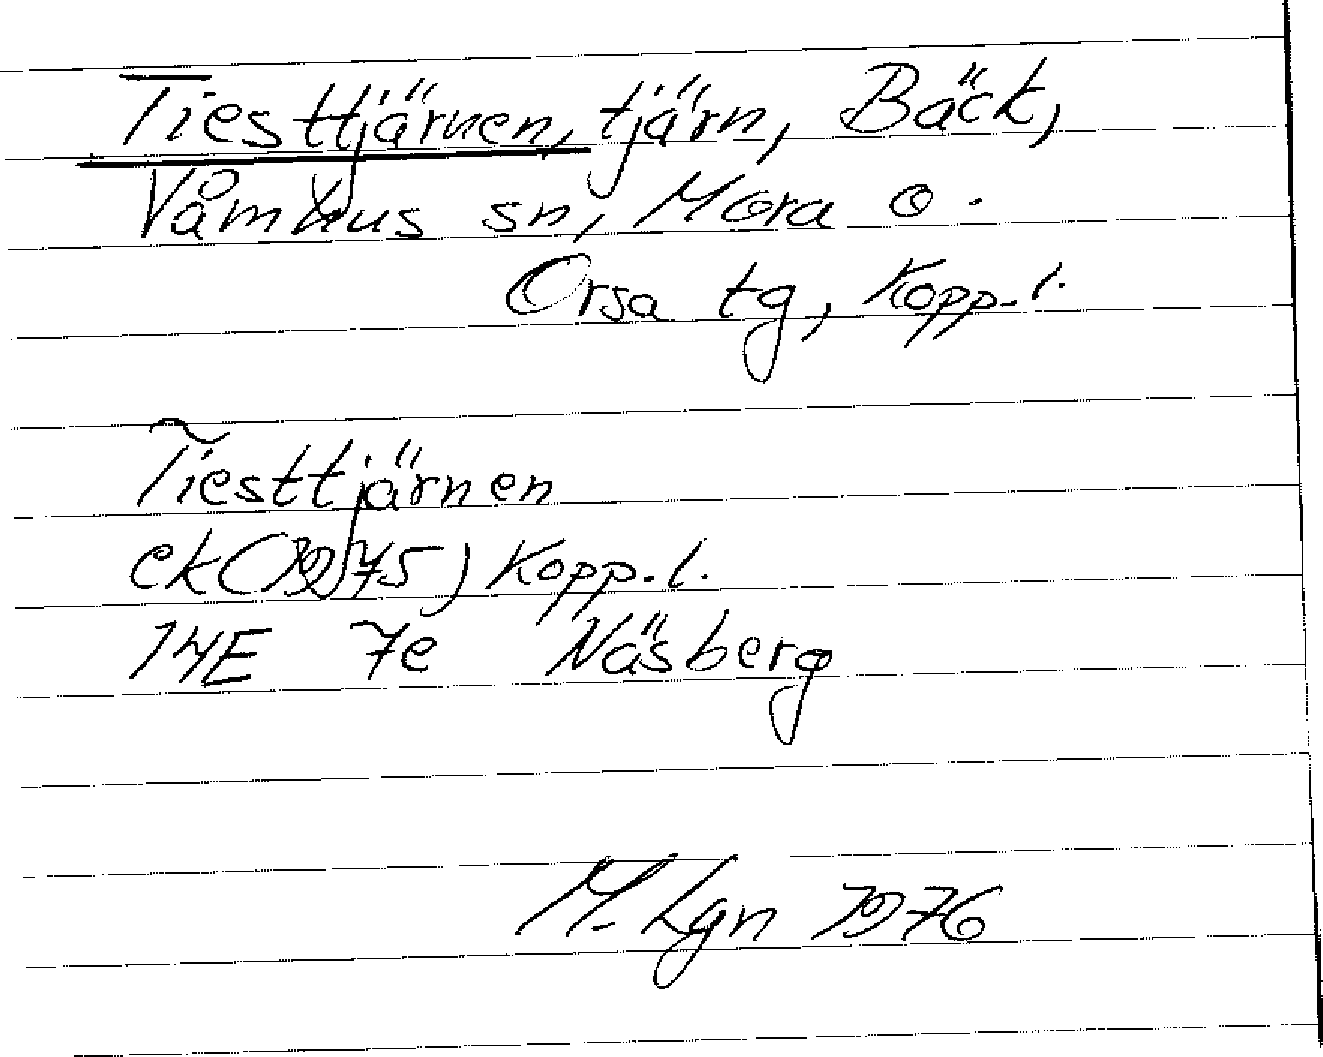 Tiesttjärnen, tjärn, Bäck,
Våmhus sn, Mora o.
Orsa tg, Kopp.l.
Tiesttjärnen
ek (1975) Kopp.l.
14E 7e Näsberg
M. Lgn 1976